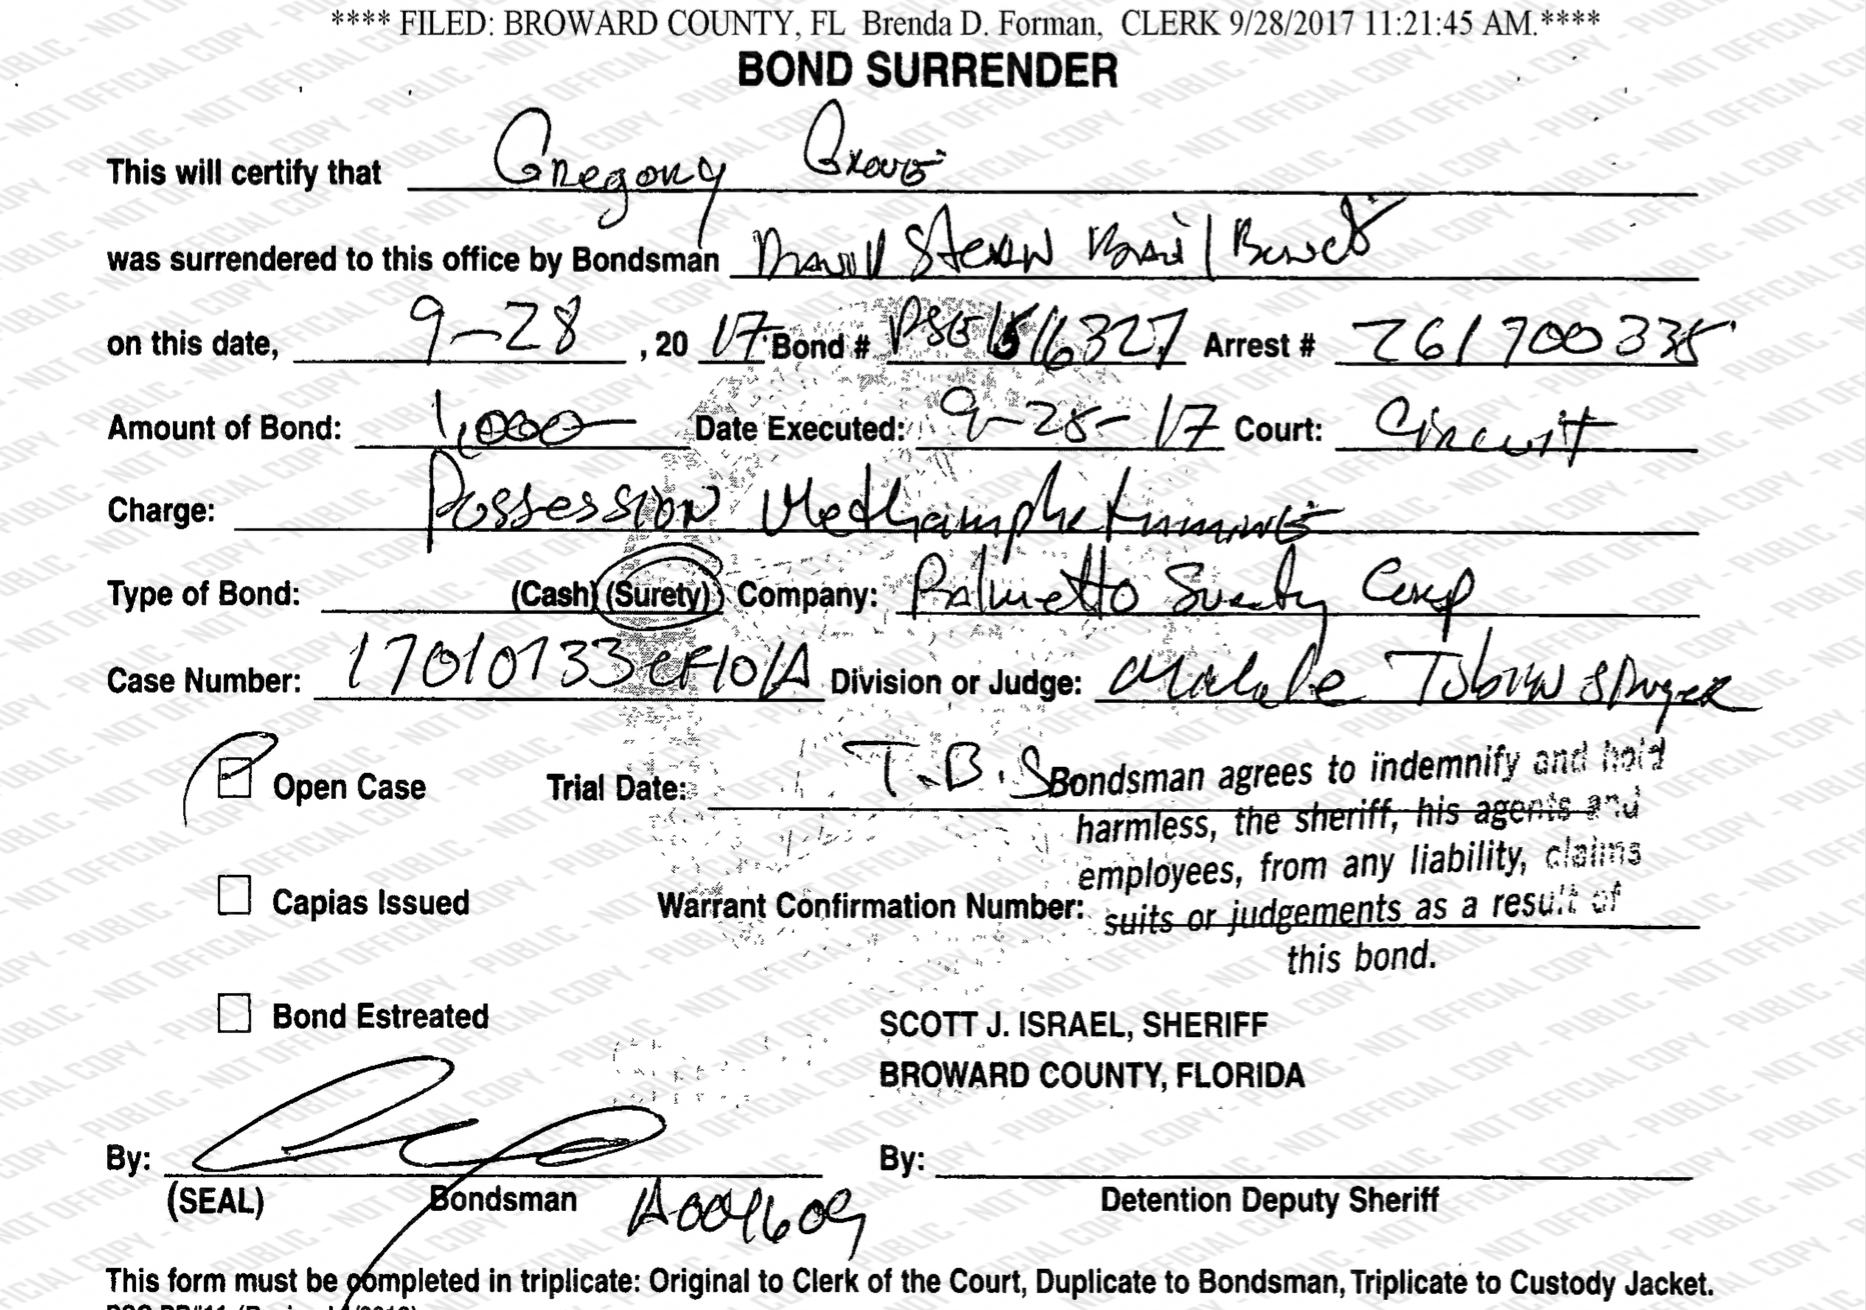 **** FILED: BROWARD COUNTY, FL Brenda D. Forman, CLERK 9/28/2017 11:21:45 AM.****
BOND SURRENDER
This will certify that Gregory Grove
was surrendered to this office by Bondsman Stern Bail Bonds
on this date, 9-28, 2017 Bond # Arrest # 261700335
Amount of Bond: 1,000 Date Executed: 9-28-17 Court: Circuit
Charge: Possession Methamphetamine
Type of Bond: (Cash) (Surety) Company: Palmetto Surety Corp
Case Number: 17010733CF10A Division or Judge: Tobin Singer
Open Case Trial Date: T.B.S
Bondsman agrees to indemnify and hold
harmless, the sheriff, his agents and
employees, from any liability, claims
suits or judgements as a result of
this bond.
Capias Issued Warrant Confirmation Number:
Bond Estreated
SCOTT J. ISRAEL, SHERIFF
BROWARD COUNTY, FLORIDA
By: By:
(SEAL) Bondsman A004609 Detention Deputy Sheriff
This form must be completed in triplicate: Original to Clerk of the Court, Duplicate to Bondsman, Triplicate to Custody Jacket.